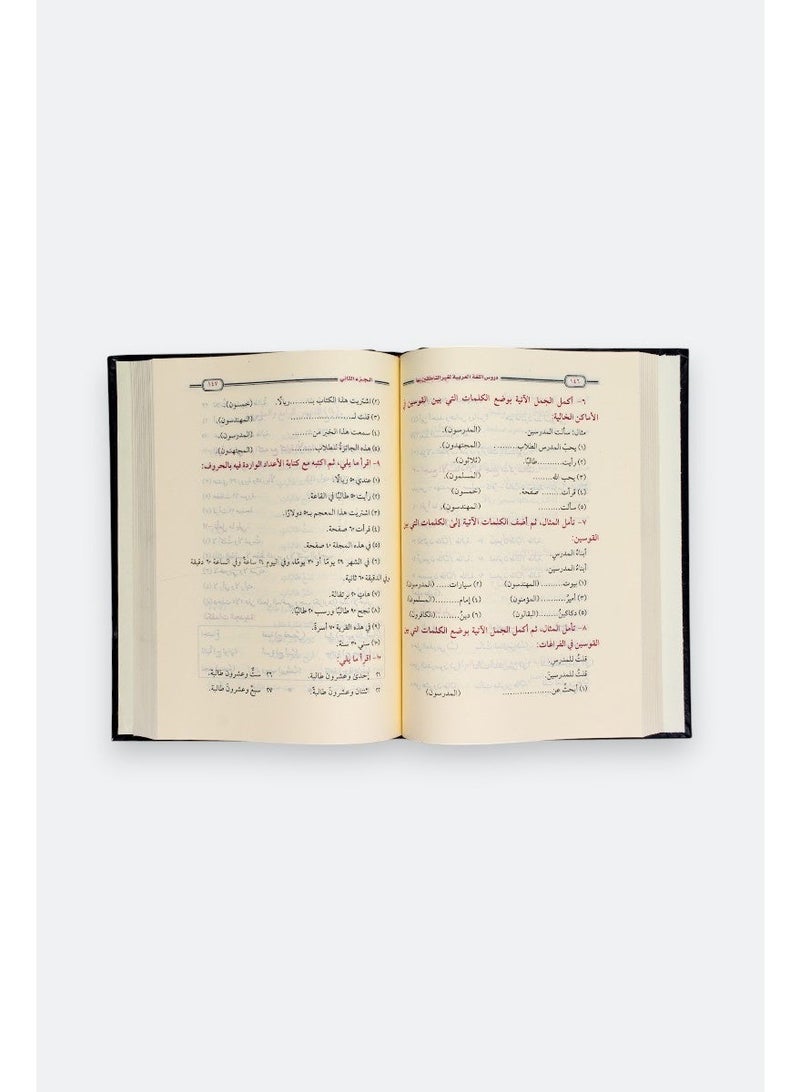 ١٤٦ دروس اللغة العربية لغير الناطقين بها
٦- أكمل الجمل الآتية بوضع الكلمات التي بين القوسين في
الأماكن الخالية:
مثال: سألت المدرسين. (المدرسون).
(١) يحبّ المدرس الطلاب.......... (المجتهدون).
(٢) رأيت.......... طالبًا. (ثلاثون).
(٣) يحب الله.......... (المسلمون).
(٤) قرأت.......... صفحة. (خمسون)
(٥) سألت.......... (المهندسون).
٧- تأمل المثال، ثم أضف الكلمات الآتية إلى الكلمات التي بين
القوسين:
أبناءُ المدرسِ.
أبناءُ المدرسين.
(١) بيوت..........(المهندسون) (٢) سيارات..........(المدرسون)
(٣) أميرُ..........(المؤمنون) (٤) إمام..........(المسلمون)
(٥) دكاكينُ..........(البقالون) (٦) دينُ..........(الكافرون)
٨- تأمل المثال، ثم أكمل الجمل الآتية بوضع الكلمات التي بين
القوسين في الفراغات:
قلتُ للمدرسِ.
قلتُ للمدرسينَ.
(١) أبحثُ عن.......... (المدرسون)
الجزء الثاني ١٤٧
(٢) اشتريت هذا الكتاب بـ..........ريالًا. (خمسون)
(٣) قلت لـ.......... (المهندسون).
(٤) سمعت هذا الخبر من.......... (المدرسون).
(٥) هذه الجائزةُ للطلاب.......... (المجتهدون)
٩- اقرأ ما يلي، ثم اكتبه مع كتابة الأعداد الواردة فيه بالحروف:
(١) عندي ٥٠ ريالًا.
(٢) رأيت ٥٠ طالبًا في القاعة.
(٣) اشتريت هذا المعجم بـ٥٠ دولارًا.
(٤) قرأت ٦٠ صفحة.
(٥) في هذه المجلة ٤٠ صفحة.
(٦) في الشهر ٢٩ يومًا أو ٣٠ يومًا، وفي اليوم ٢٤ ساعةً وفي الساعة ٦٠ دقيقة
وفي الدقيقة ٦٠ ثانية.
(٧) هات ٢٠ برتقالة.
(٨) نجح ٩٠ طالبًا ورسب ٢٠ طالبًا.
(٩) في هذه القرية ٧٠ أسرةً.
(١٠) سني ٣٠ سنة.
١٠- اقرأ ما يلي:
٢١ إحدىٰ وعشرونَ طالبة. ٢٦ ستٌّ وعشرونَ طالبة.
٢٢ اثنتان وعشرونَ طالبة. ٢٧ سبعٌ وعشرونَ طالبة.